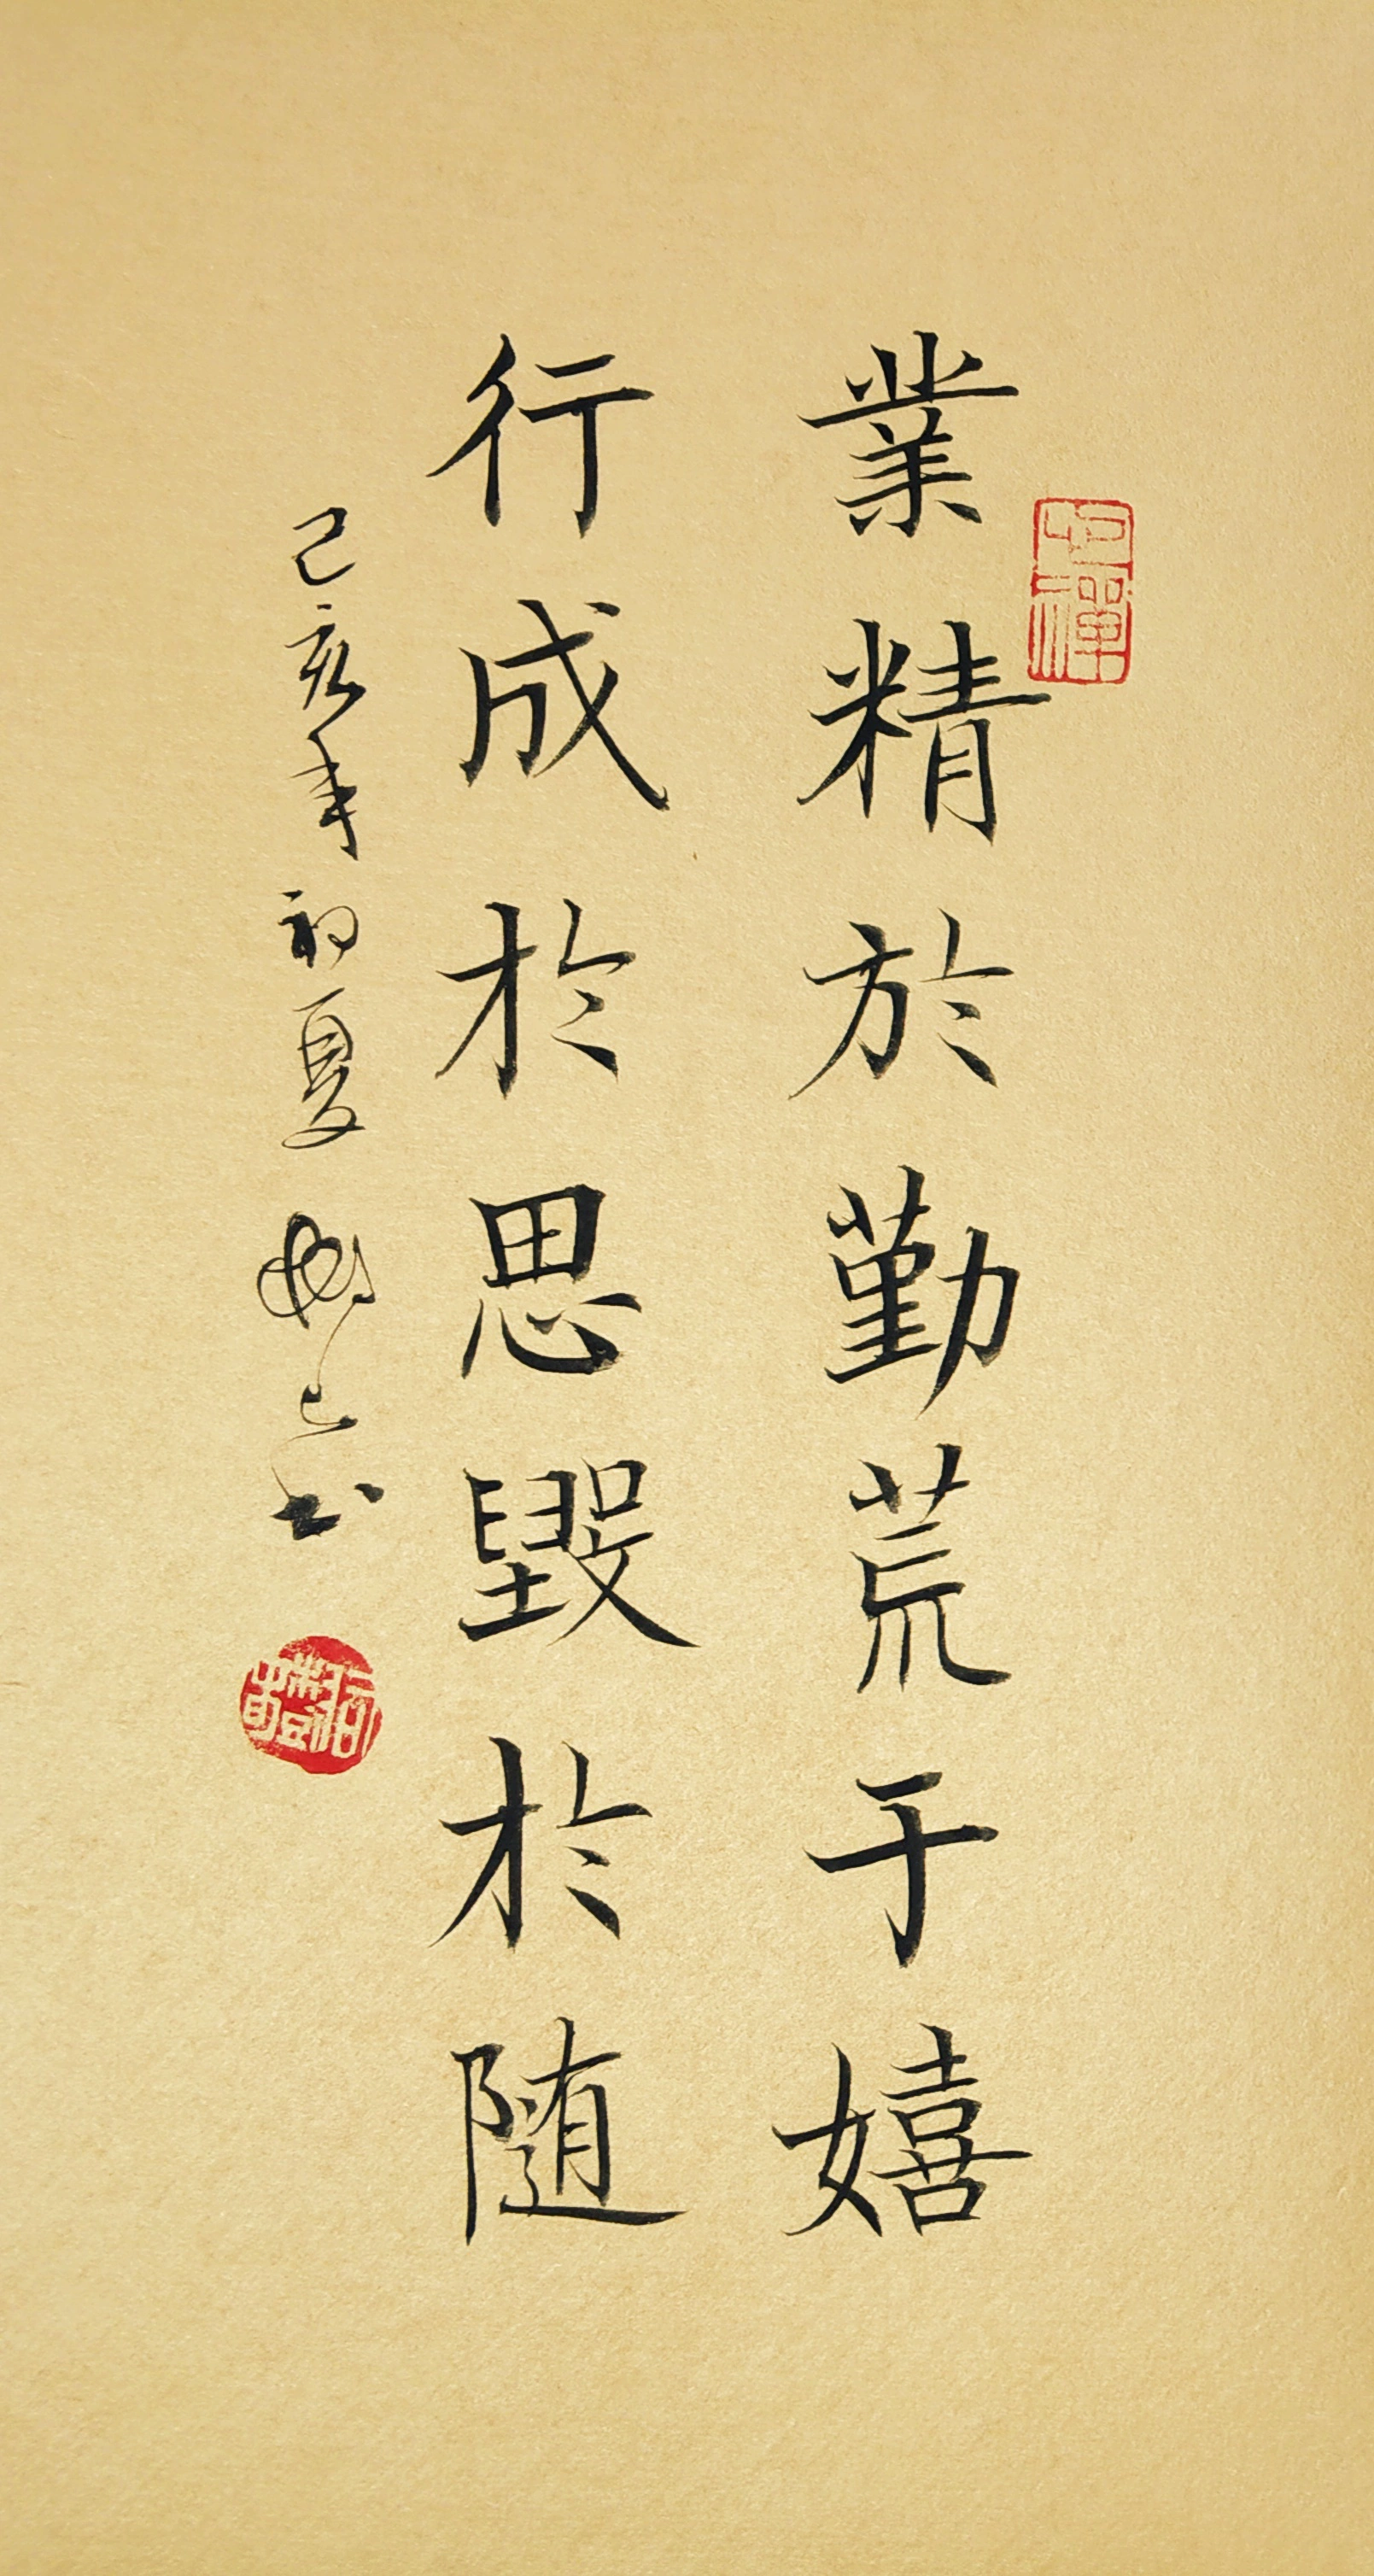 業精於勤荒于嬉
行成於思毀於随
己亥年初夏